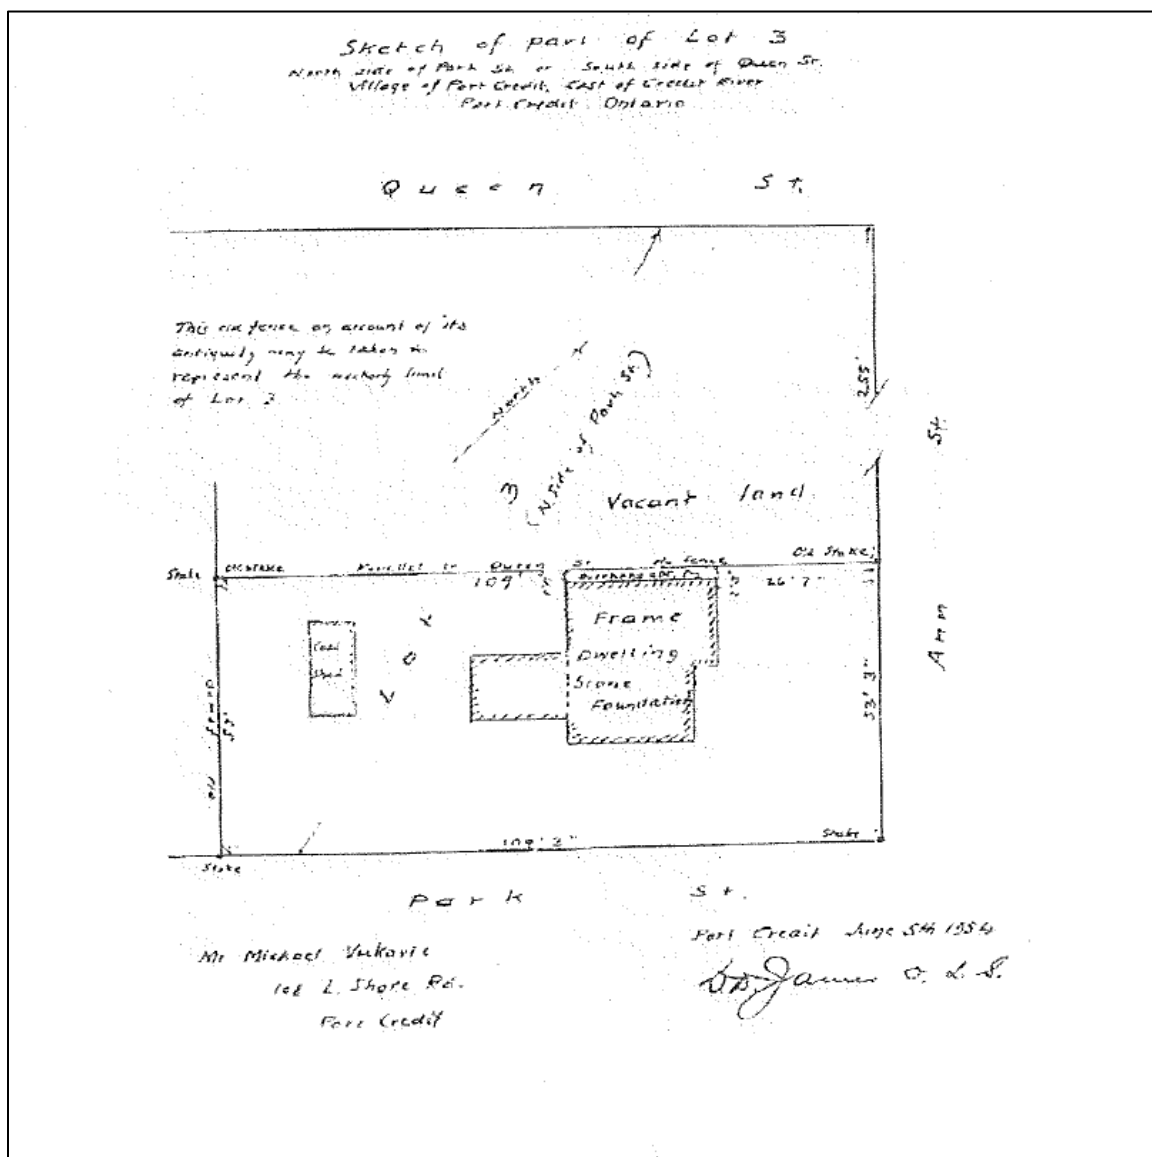 Sketch of part of Lot 3
North side of Park St. or South side of Queen St.
Village of Port Credit, East of Credit River
Port Credit Ontario
Queen St.
This old fence on account of its
antiquity may be taken to
represent the westerly limit
of Lot 3
North
255'
3
(N Side of Park St.)
St
Vacant land
Stake
Old Stake
Parallel to Queen St. No fence
Old Stake
109'
26' 7"
Frame
Dwelling
Stone
Foundation
Coal
Shed
V O X
Ann
53' 3"
Old
53'
109' 3"
Stake
Stake
Park St.
Port Credit June 5th 1954
Mr Michael Vukovic
L. Shore Rd.
Port Credit
James O. L. S.